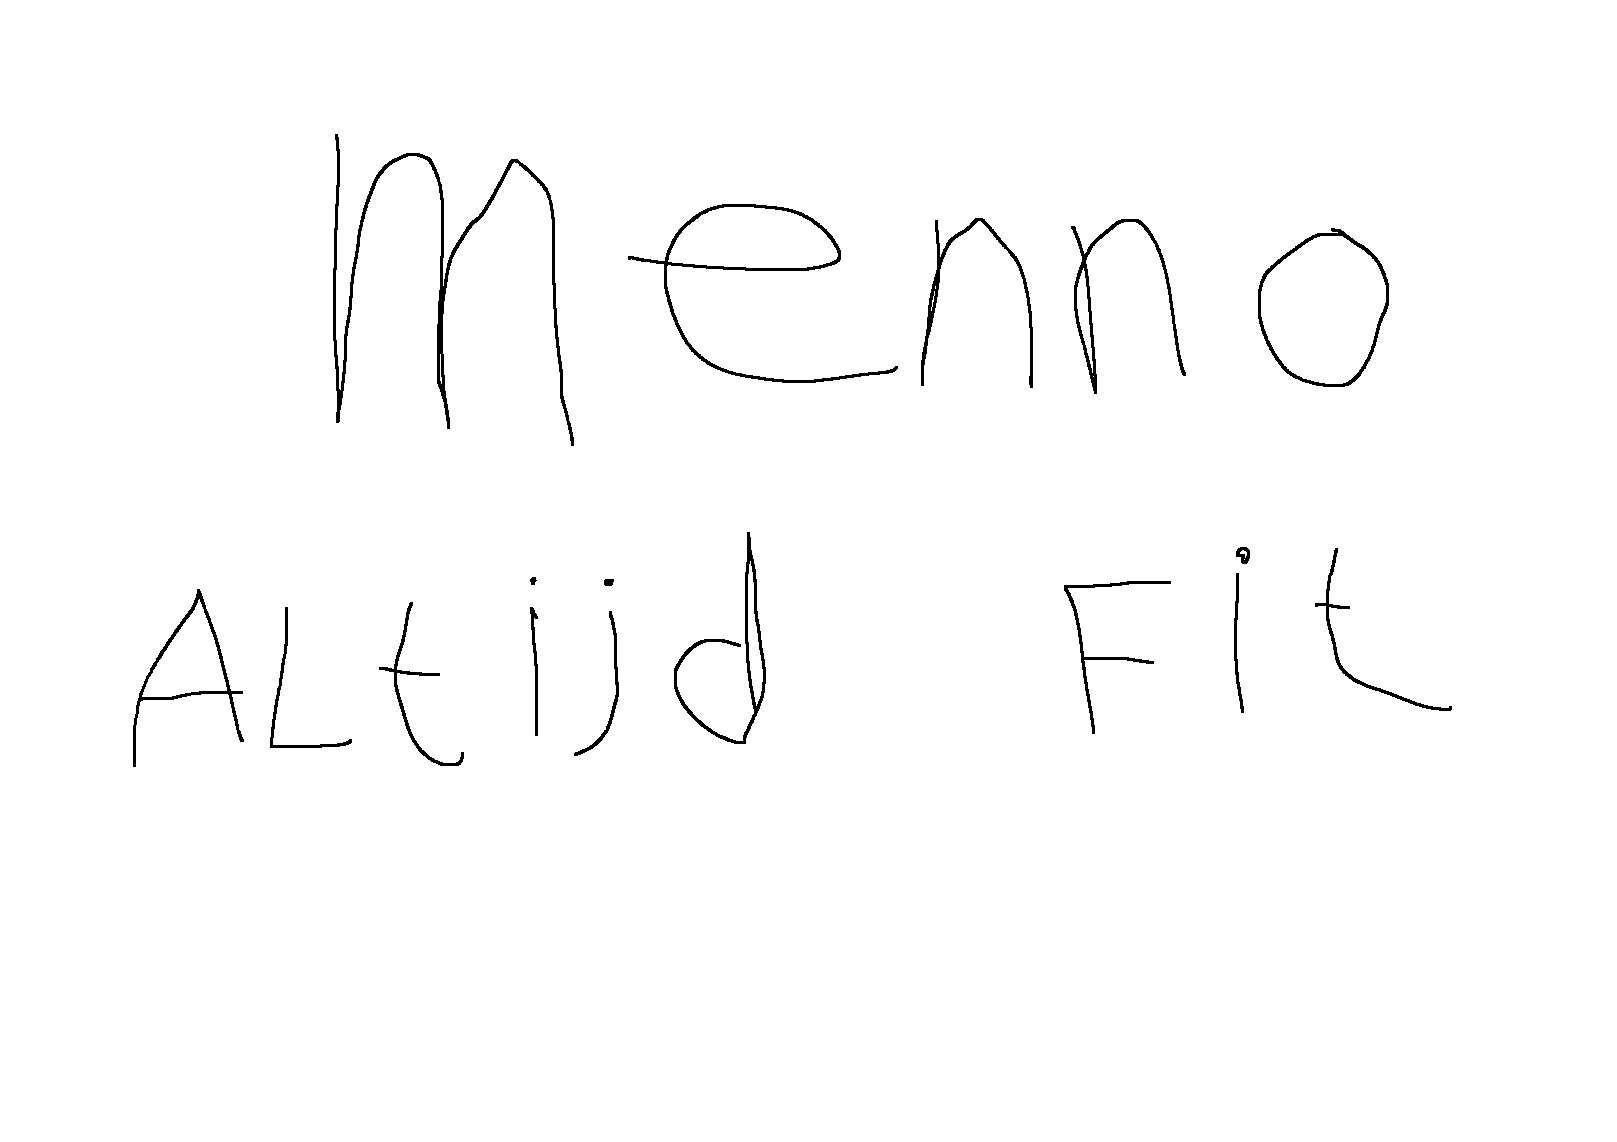 Menno
ALtijd Fit